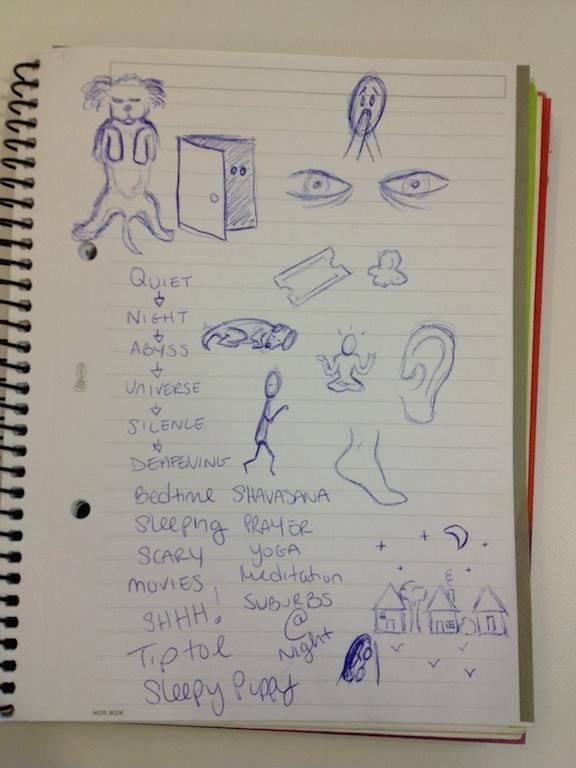 QUIET
NIGHT
ABYSS
UNIVERSE
SILENCE
DEAFENING
Bedtime SHAVASANA
Sleeping PRAYER
SCARY YOGA
MOVIES Meditation
SHHH! SUBURBS
@
Tiptoe Night
Sleepy Puppy
NOTE BOOK